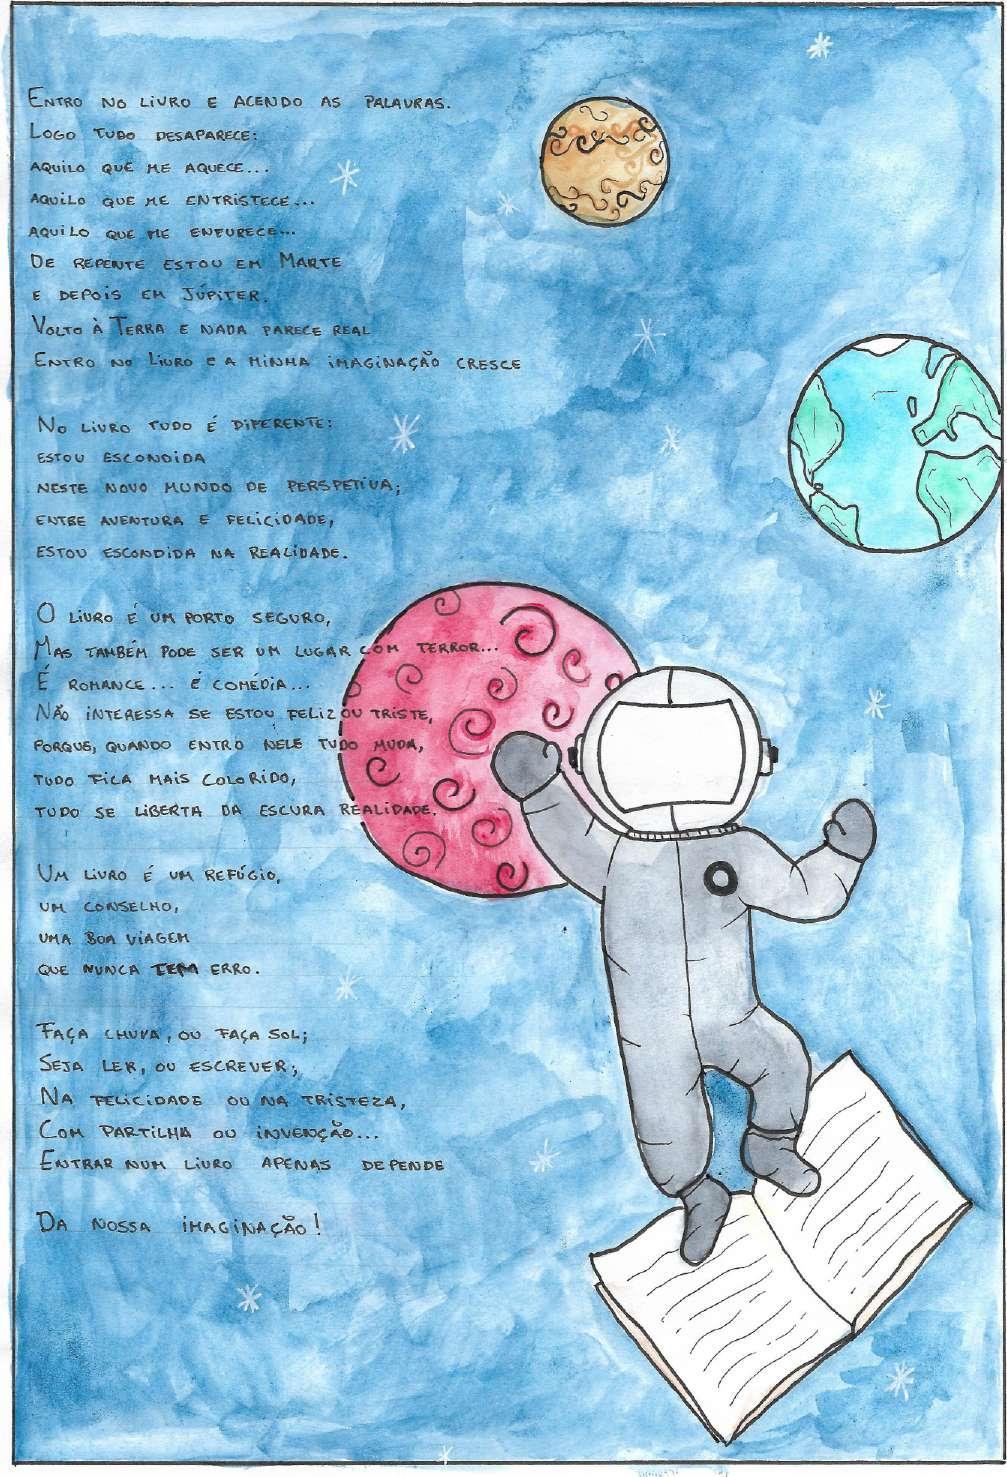 Entro no livro e acendo as palavras.
Logo tudo desaparece:
aquilo que me aquece...
aquilo que me entristece...
aquilo que me enfurece...
De repente estou em Marte
e depois em Júpiter.
Volto à Terra e nada parece real
Entro no Livro e a minha imaginação cresce

No livro tudo é diferente:
estou escondida
neste novo mundo de perspetiva;
entre aventura e felicidade,
estou escondida na realidade.

O livro é um porto seguro,
Mas também pode ser um lugar com terror...
É romance... é comédia...
Não interessa se estou feliz ou triste,
porque, quando entro nele tudo muda,
tudo fica mais colorido,
tudo se liberta da escura realidade.

Um livro é um refúgio,
um conselho,
uma boa viagem
que nunca terá erro.

Faça chuva, ou faça sol;
Seja ler, ou escrever;
Na felicidade ou na tristeza,
Com partilha ou invenção...
Entrar num livro apenas depende

Da nossa imaginação!